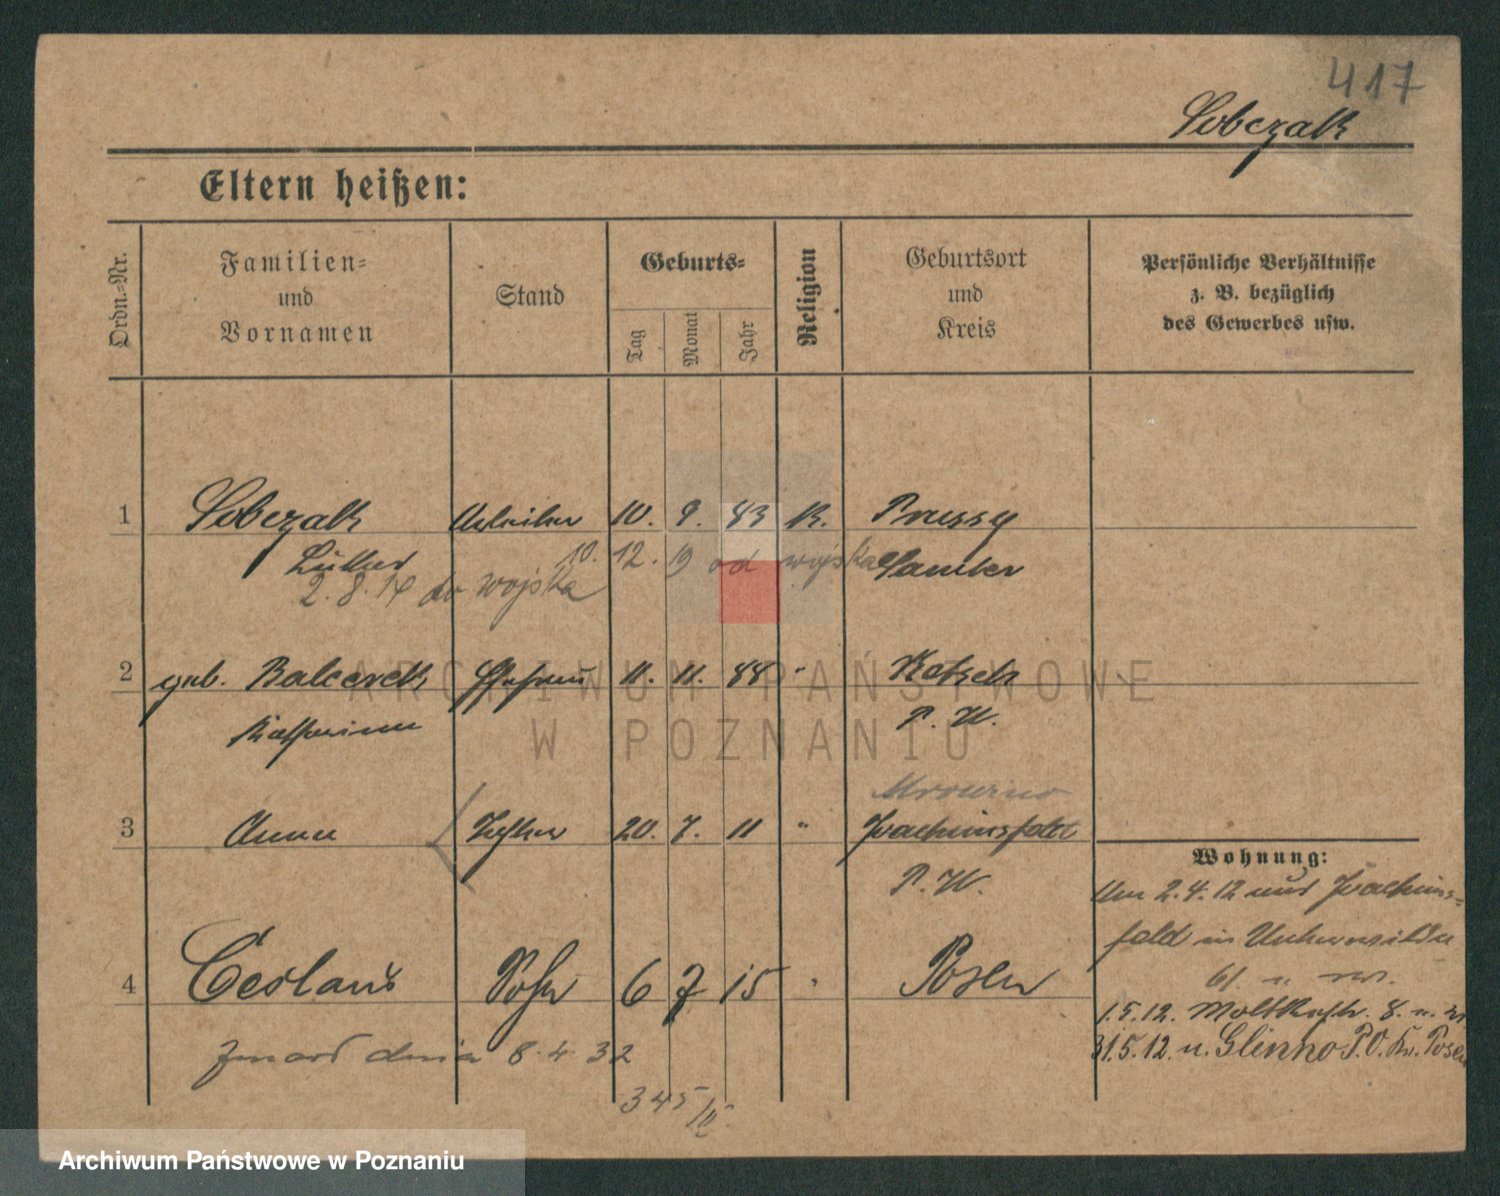 417
Sobczak
Eltern heißen:
Ordn.-Nr.
Familien-
und
Vornamen
Stand
Geburts-
Tag
Monat
Jahr
Religion
Geburtsort
und
Kreis
Persönliche Verhältnisse
z. B. bezüglich
des Gewerbes usw.
1 Sobczak Arbeiter 10. 9. 83 K. Prussy
10. 12. 19 od wojska Samter
2.8.14 do wojska
2 geb. Balcerek Ehefrau 11. 11. 88 "
Katharina P. W.
3 Anna Tochter 20. 7. 11 " Joachimsfeld
P. W.
Wohnung:
Am 2.4.12 aus Joachims-
feld in
4 Ceslaus Sohn 6 7 15 " Posen
1.5.12. Moltkestr. 8. n.
31.5.12. n. Glinno P.O. Kr. Posen
zmarł dnia 8.4.32
345/II
ARCHIWUM PAŃSTWOWE
W POZNANIU
Archiwum Państwowe w Poznaniu